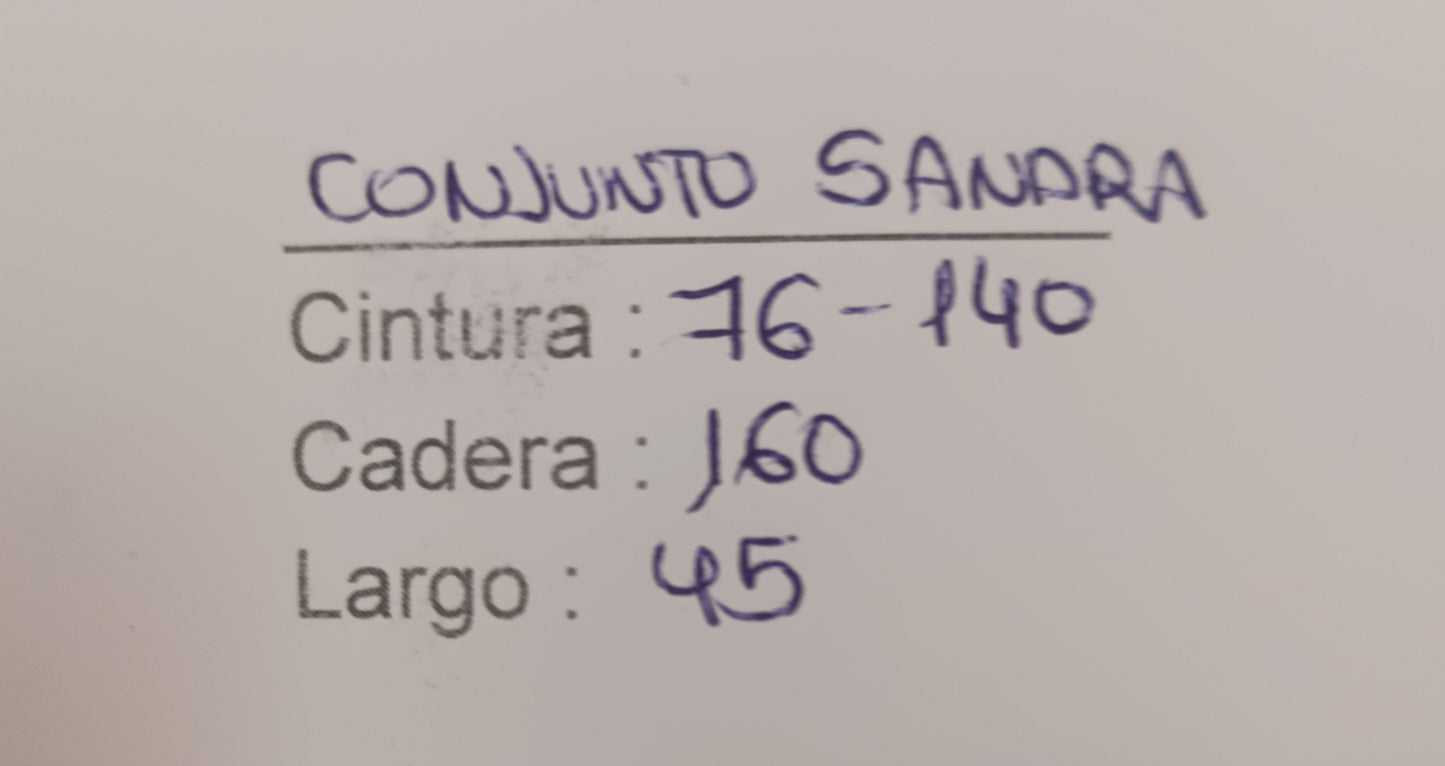 CONJUNTO SANDRA
Cintura : 76-140
Cadera : 160
Largo : 45